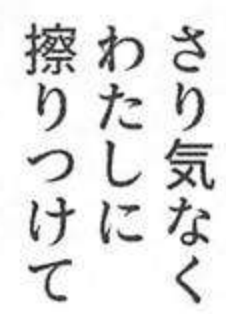 さり気なく
わたしに
擦りつけて